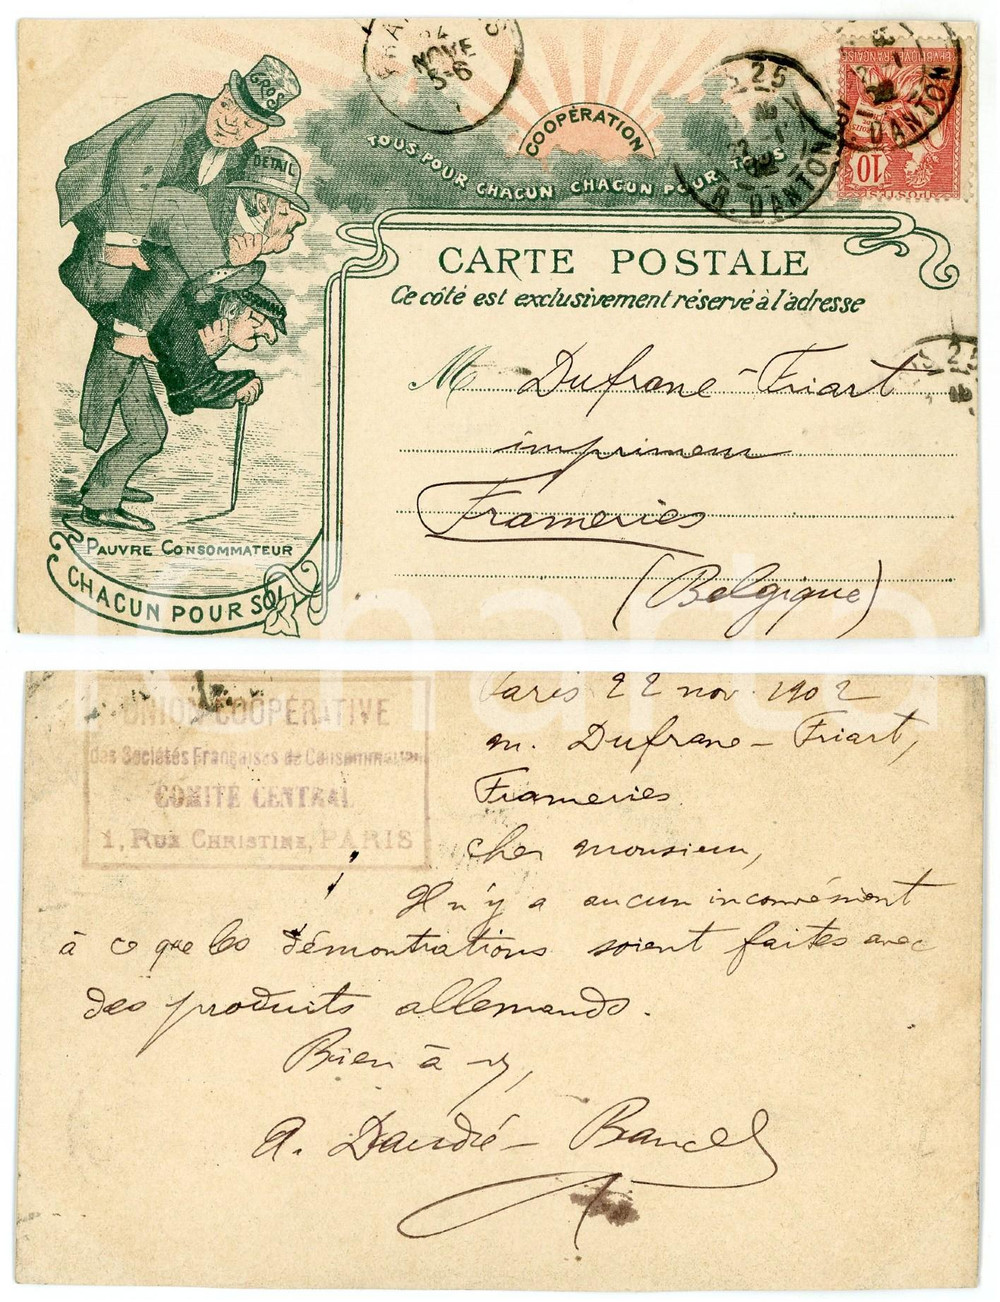 GROS
DÉTAIL
COOPÉRATION
TOUS POUR CHACUN CHACUN POUR TOUS
24
NOVE
5-6
25
R. DANTON
R. DANTON
10
POSTES
CARTE POSTALE
Ce côté est exclusivement réservé à l'adresse
M Dufrane-Friart
imprimeur
Frameries
(Belgique)
25
PAUVRE CONSOMMATEUR
CHACUN POUR SOI
UNION COOPÉRATIVE
des Sociétés Françaises de Consommation
COMITÉ CENTRAL
1, RUE CHRISTINE, PARIS
Paris 22 nov. 1902
m. Dufrane-Friart,
Frameries.
cher monsieur,
Il n'y a aucun inconvénient
à ce que les démontrations soient faites avec
des produits allemands.
Bien à v,
A. Daudé-Bancel